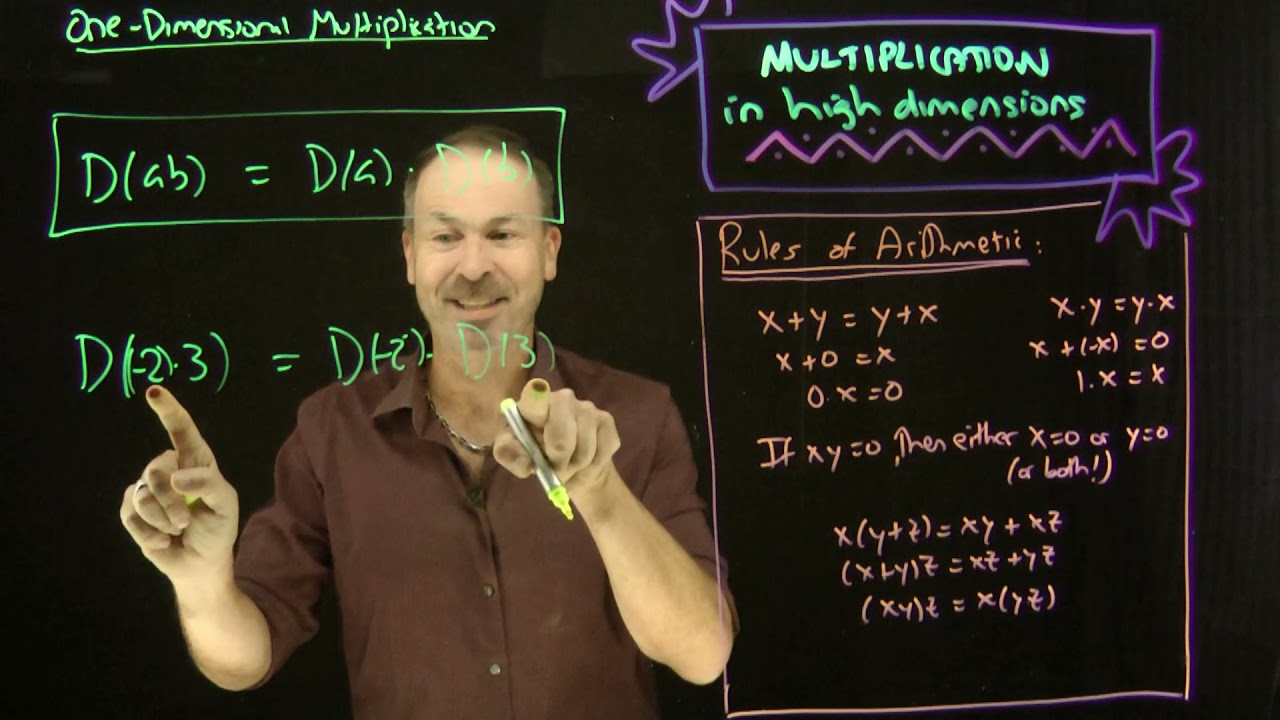 One-Dimensional Multiplication
D(ab) = D(a) · D(b)
D((-2)·3) = D(-2) · D(3)
MULTIPLICATION
in high dimensions
Rules of Arithmetic:
x+y = y+x
x·y = y·x
x+0 = x
x+(-x) = 0
0·x = 0
1·x = x
If xy=0, then either x=0 or y=0
(or both!)
x(y+z) = xy + xz
(x+y)z = xz + yz
(xy)z = x(yz)